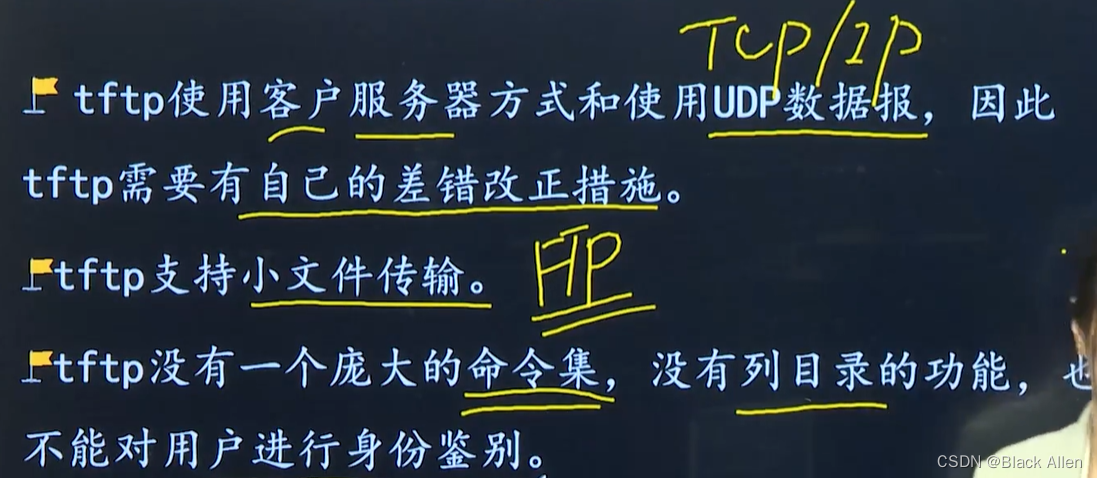 TCP/IP
tftp使用客户服务器方式和使用UDP数据报，因此
tftp需要有自己的差错改正措施。
tftp支持小文件传输。 FTP
tftp没有一个庞大的命令集，没有列目录的功能，也
不能对用户进行身份鉴别。
CSDN @Black Allen